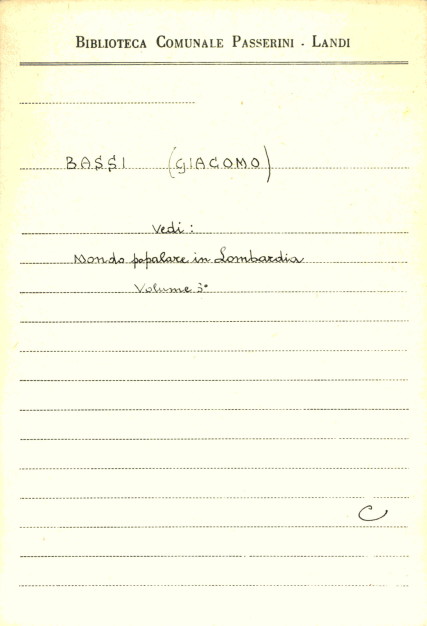 BIBLIOTECA COMUNALE PASSERINI - LANDI
BASSI (GIACOMO)
Vedi:
Mondo popolare in Lombardia
Volume 3°
C